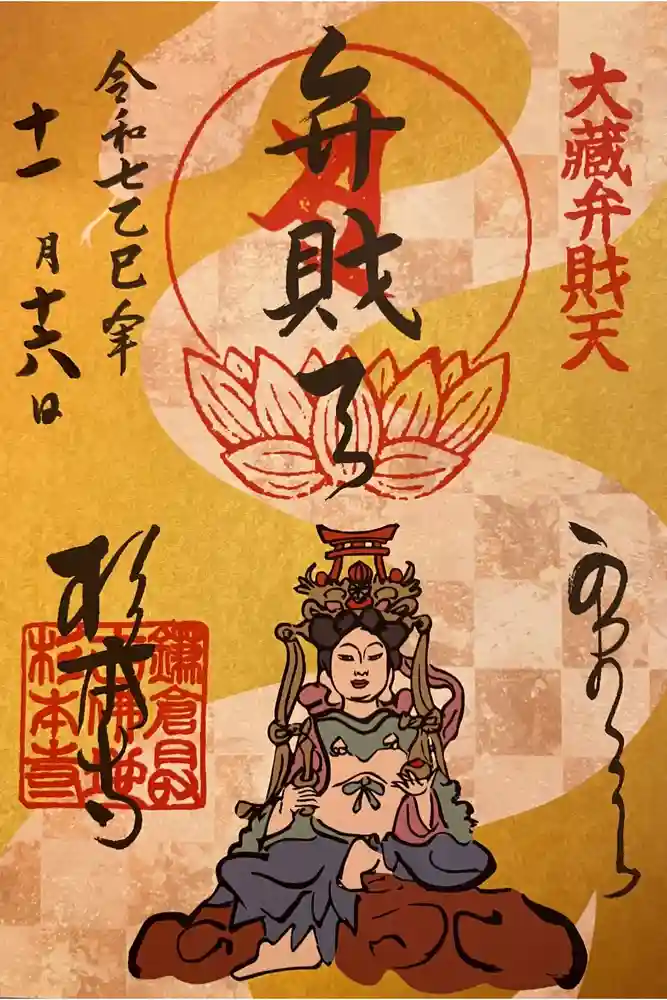 大藏弁財天
弁財天
令和七乙巳年
十一月十六日
杉本寺
鎌倉最
古佛地
杉本寺